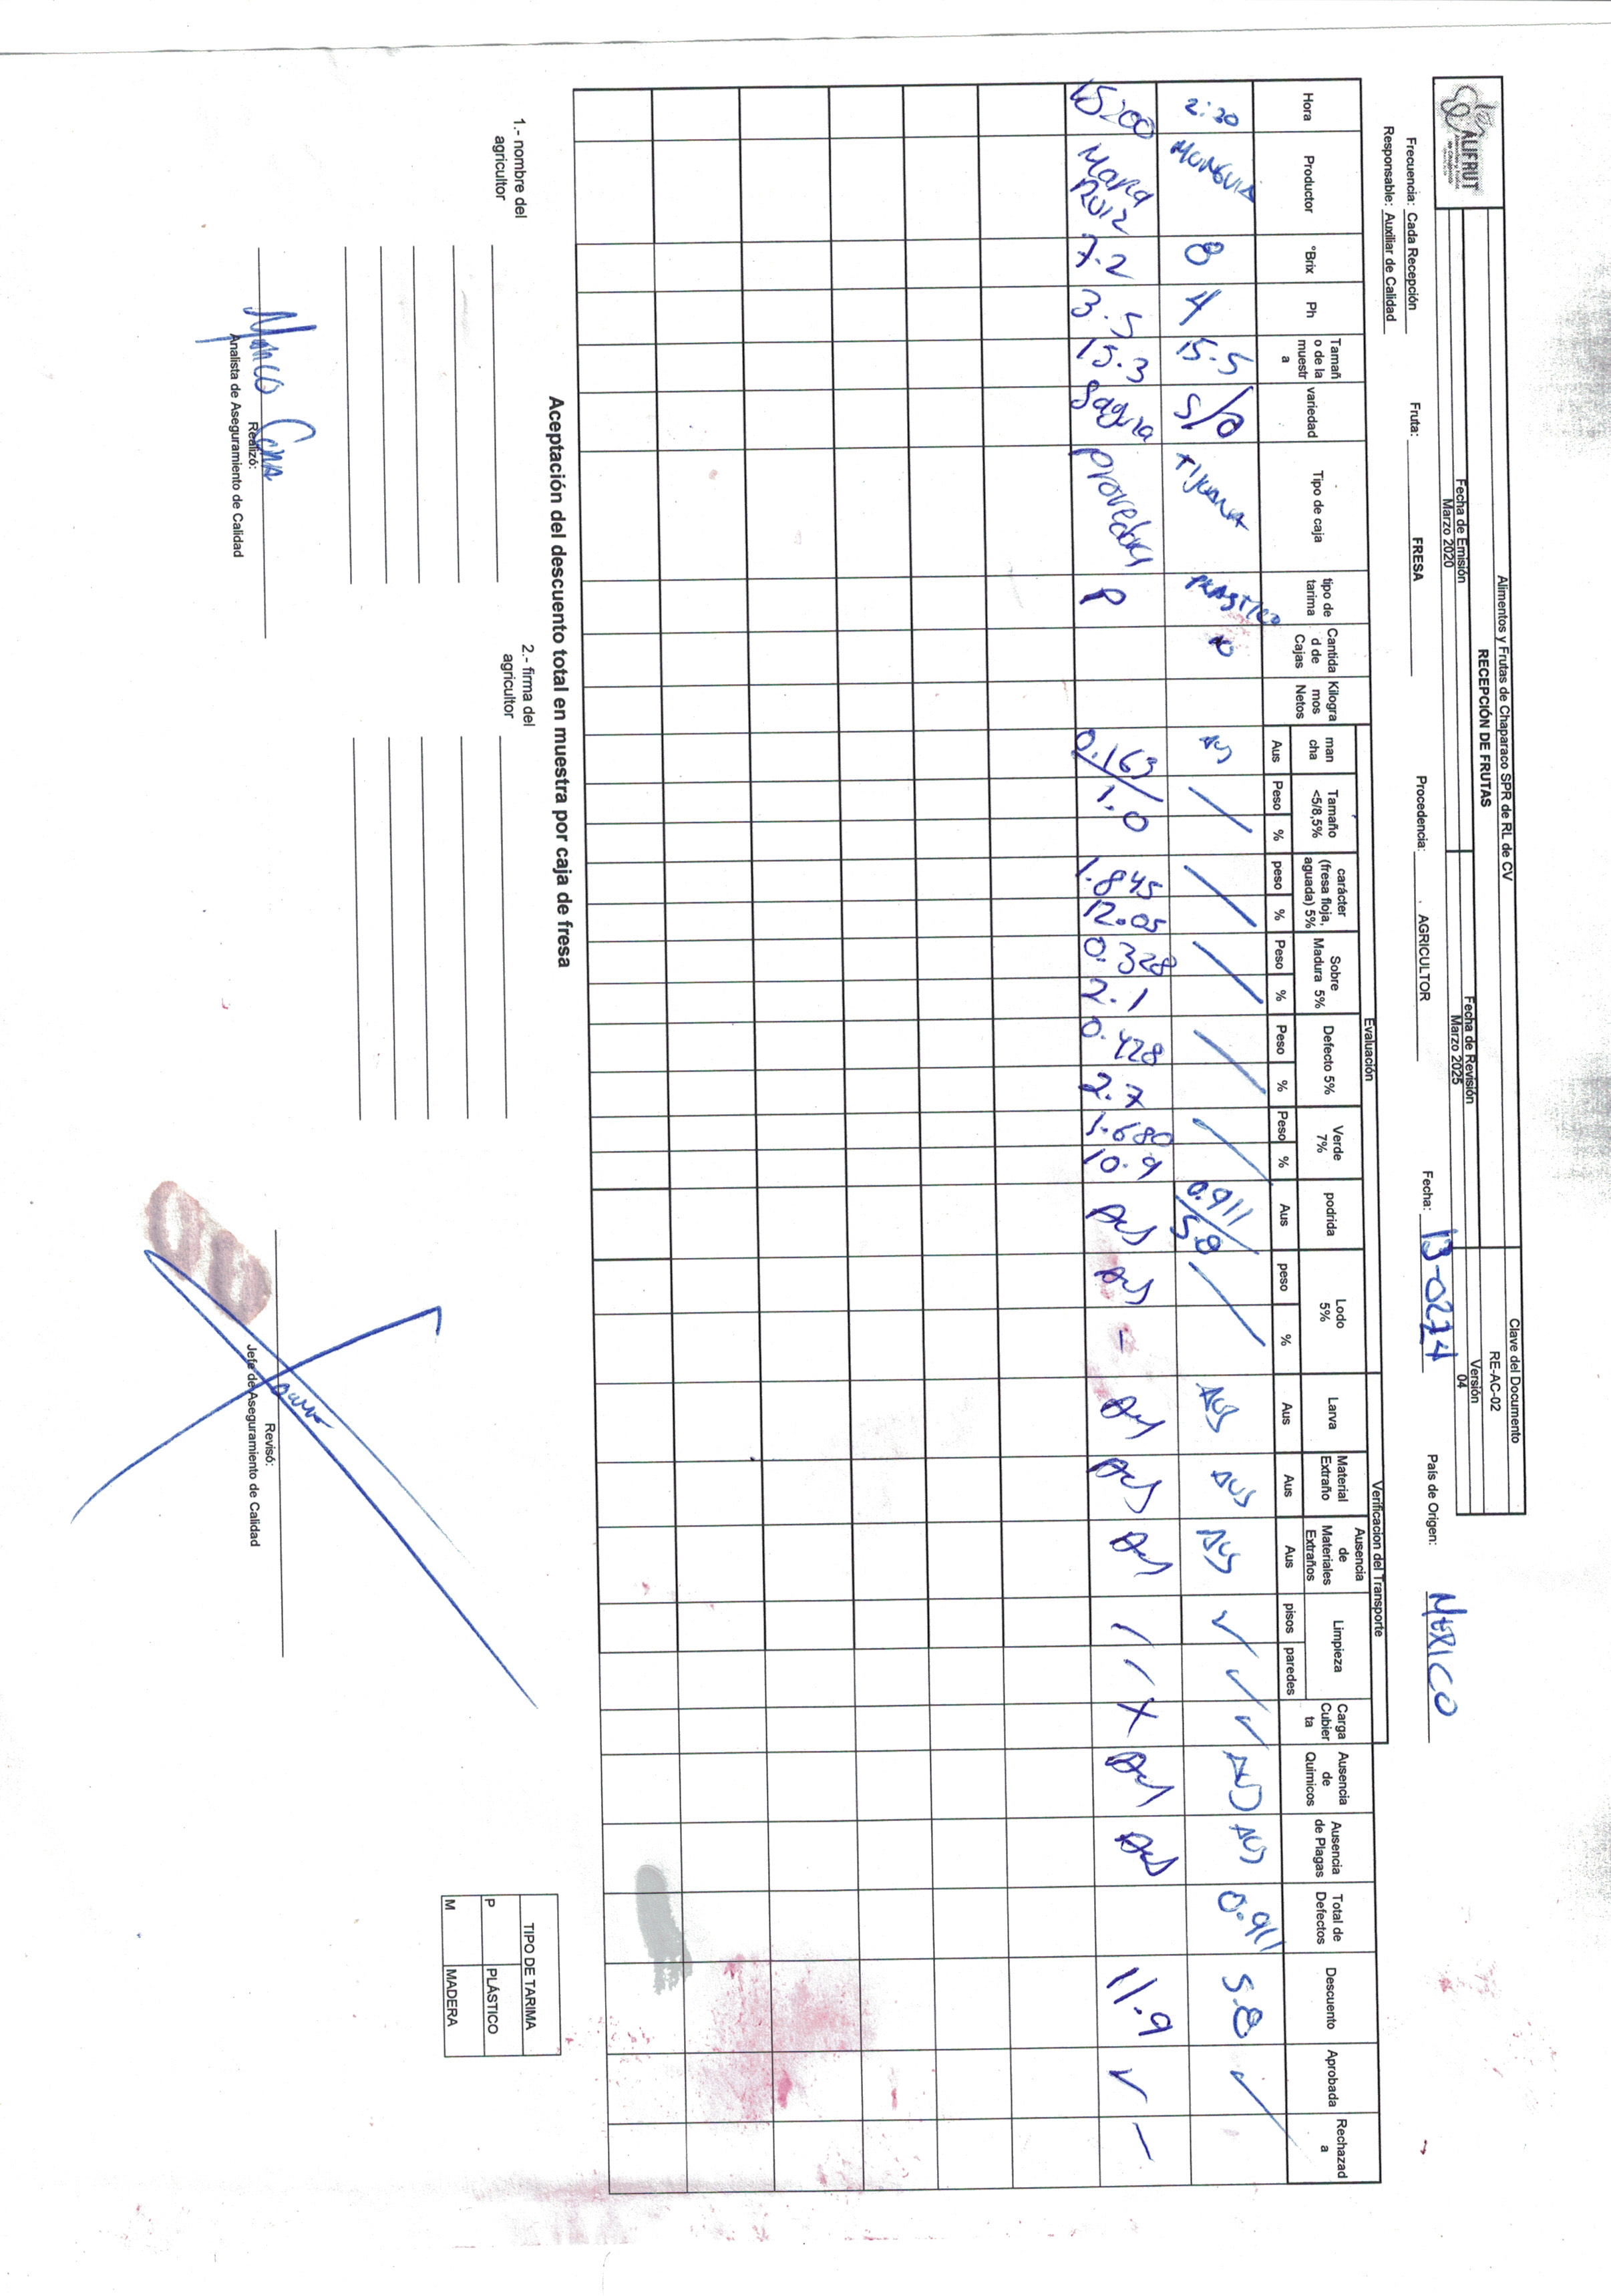 ALIFRUT
Alimentos y Frutas de Chaparaco SPR de RL de CV
RECEPCIÓN DE FRUTAS
Fecha de Emisión
Marzo 2020
Fecha de Revisión
Marzo 2025
Clave del Documento
RE-AC-02
Versión
04
Frecuencia: Cada Recepción
Fruta: FRESA
Procedencia: AGRICULTOR
Fecha:
País de Origen: MEXICO
Responsable: Auxiliar de Calidad
Evaluación
Verificacion del Transporte
Hora
Productor
°Brix
Ph
Tamañ
o de la
muestr
a
variedad
Tipo de caja
tipo de
tarima
Cantida
d de
Cajas
Kilogra
mos
Netos
man
cha
Aus
Tamaño
<5/8,5%
Peso %
carácter
(fresa floja,
aguada) 5%
peso %
Sobre
Madura 5%
Peso %
Defecto 5%
Peso %
Verde
7%
Peso %
podrida
Aus
Lodo
5%
peso %
Larva
Aus
Material
Extraño
Aus
Ausencia
de
Materiales
Extraños
Aus
Limpieza
pisos paredes
Carga
Cubier
ta
Ausencia
de
Quimicos
Ausencia
de Plagas
Total de
Defectos
Descuento
Aprobada
Rechazad
a
2:20 MUNGUIA 8 4 15.5 S/D TIJUANA PLASTICO AUS / / / / / 0.911/5.8 / AUS AUS AUS ✓ ✓ ✓ AUS AUS 0.911 5.8 ✓
15:00 Maria Ruiz 7.2 3.5 15.3 Sayulia Provedor P 0.163/1.0 1.845 12.05 0.328 2.1 0.428 2.7 1.680 10.9 Aus Aus - Aus Aus Aus ✓ ✓ X Aus Aus 11.9 ✓ -
Aceptación del descuento total en muestra por caja de fresa
1.- nombre del
agricultor
2.- firma del
agricultor
TIPO DE TARIMA
P PLÁSTICO
M MADERA
Marco
Realizó:
Analista de Aseguramiento de Calidad
Revisó:
Jefe de Aseguramiento de Calidad